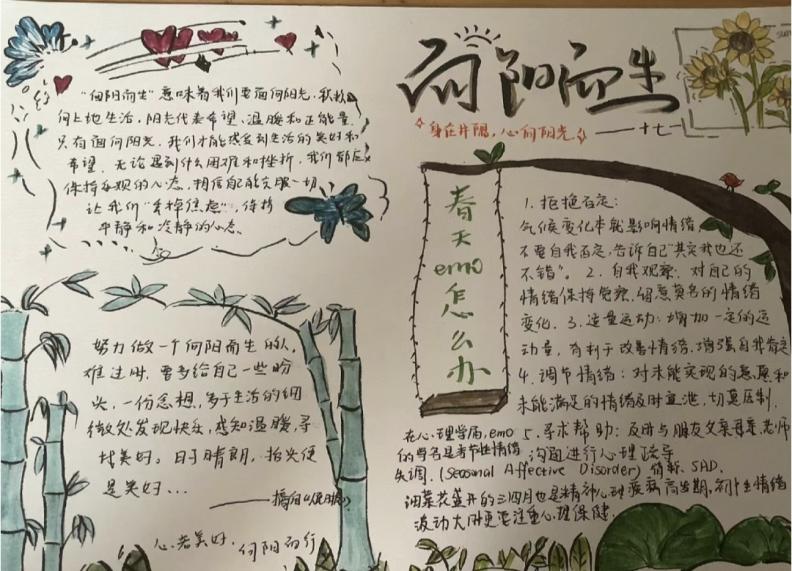 "向阳而生"意味着我们要面向阳光,积极
向上地生活,阳光代表希望、温暖和正能量。
只有面向阳光,我们才能感受到生活的美好和
希望。无论遇到什么困难和挫折,我们都应
保持乐观的心态,相信自己能克服一切
让我们"卖掉焦虑",保持
平静和冷静的心态.
向阳而生
身在井隅,心向阳光
十七
春天emo怎么办
1. 拒绝否定:
气候变化本就影响情绪,
不要自我否定,告诉自己"其实我也还
不错"。2. 自我观察:对自己的
情绪保持觉察,留意莫名的情绪
变化. 3. 适量运动:增加一定的运
动量,有利于改善情绪,增强自我肯定
4. 调节情绪:对未能实现的意愿和
未能满足的情绪及时宣泄,切莫压制.
5. 寻求帮助:及时与朋友父亲母亲、老师
沟通进行心理疏导
在心理学届,emo
的学名是季节性情绪
失调.(Seasonal Affective Disorder) 简称、SAD.
油菜花盛开的三四月也是精神心理疾病高发期,初中生情绪
波动大时更要注重心理保健.
努力做一个向阳而生的人
难过时.要多给自己一些盼
头,一份念想,多于生活的细
微处发现快乐,感知温暖,寻
找美好。日子晴朗,抬头便
是美好...
心若美好,向阳而行